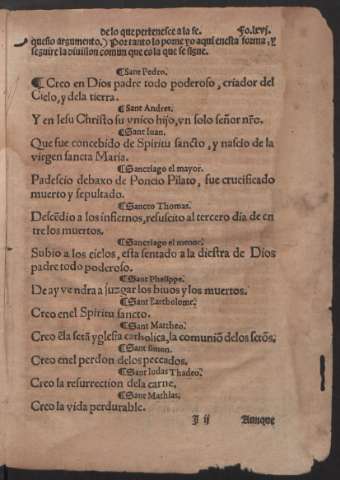 de lo que pertenesce a la fe. Fo.lxvj.
questo argumento.) Por tanto lo pome yo aqui enesta forma, Y
seguire la diuision comun que es la que se sigue.
¶Sant Pedro.
¶ Creo en Dios padre todo poderoso, criador del
Cielo, y dela tierra.
¶Sant Andres.
Y en Iesu Christo su vnico hijo, vn solo señor nr̃o.
¶Sant Iuan.
Que fue concebido de Spiritu sancto, y nascio de la
virgen sancta Maria.
¶Sanctiago el mayor.
Padescio debaxo de Poncio Pilato, fue crucificado
muerto y sepultado.
¶Sancto Thomas.
Descẽdio a los infiernos, resuscito al tercero dia de en
tre los muertos.
¶Sanctiago el menor.
Subio a los cielos, esta sentado a la diestra de Dios
padre todo poderoso.
¶Sant Phelippe.
De ay vendra a juzgar los biuos y los muertos.
¶Sant Bartholome.
Creo enel Spiritu sancto.
¶Sant Mattheo.
Creo ẽla sctã yglesia catholica, la comuniõ delos sctõs.
¶Sant simon.
Creo enel perdon delos peccados.
¶Sant Iudas Thadeo.
Creo la resurrection dela carne.
¶Sant Mathias.
Creo la vida perdurable.
I ij Aunque